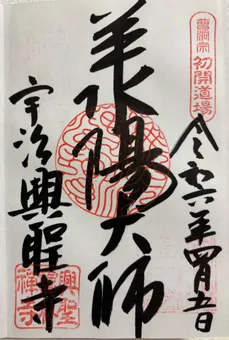 曹洞宗
初開道場
令和六年四月五日
承陽大師
宇治興聖寺
興聖
禅寺